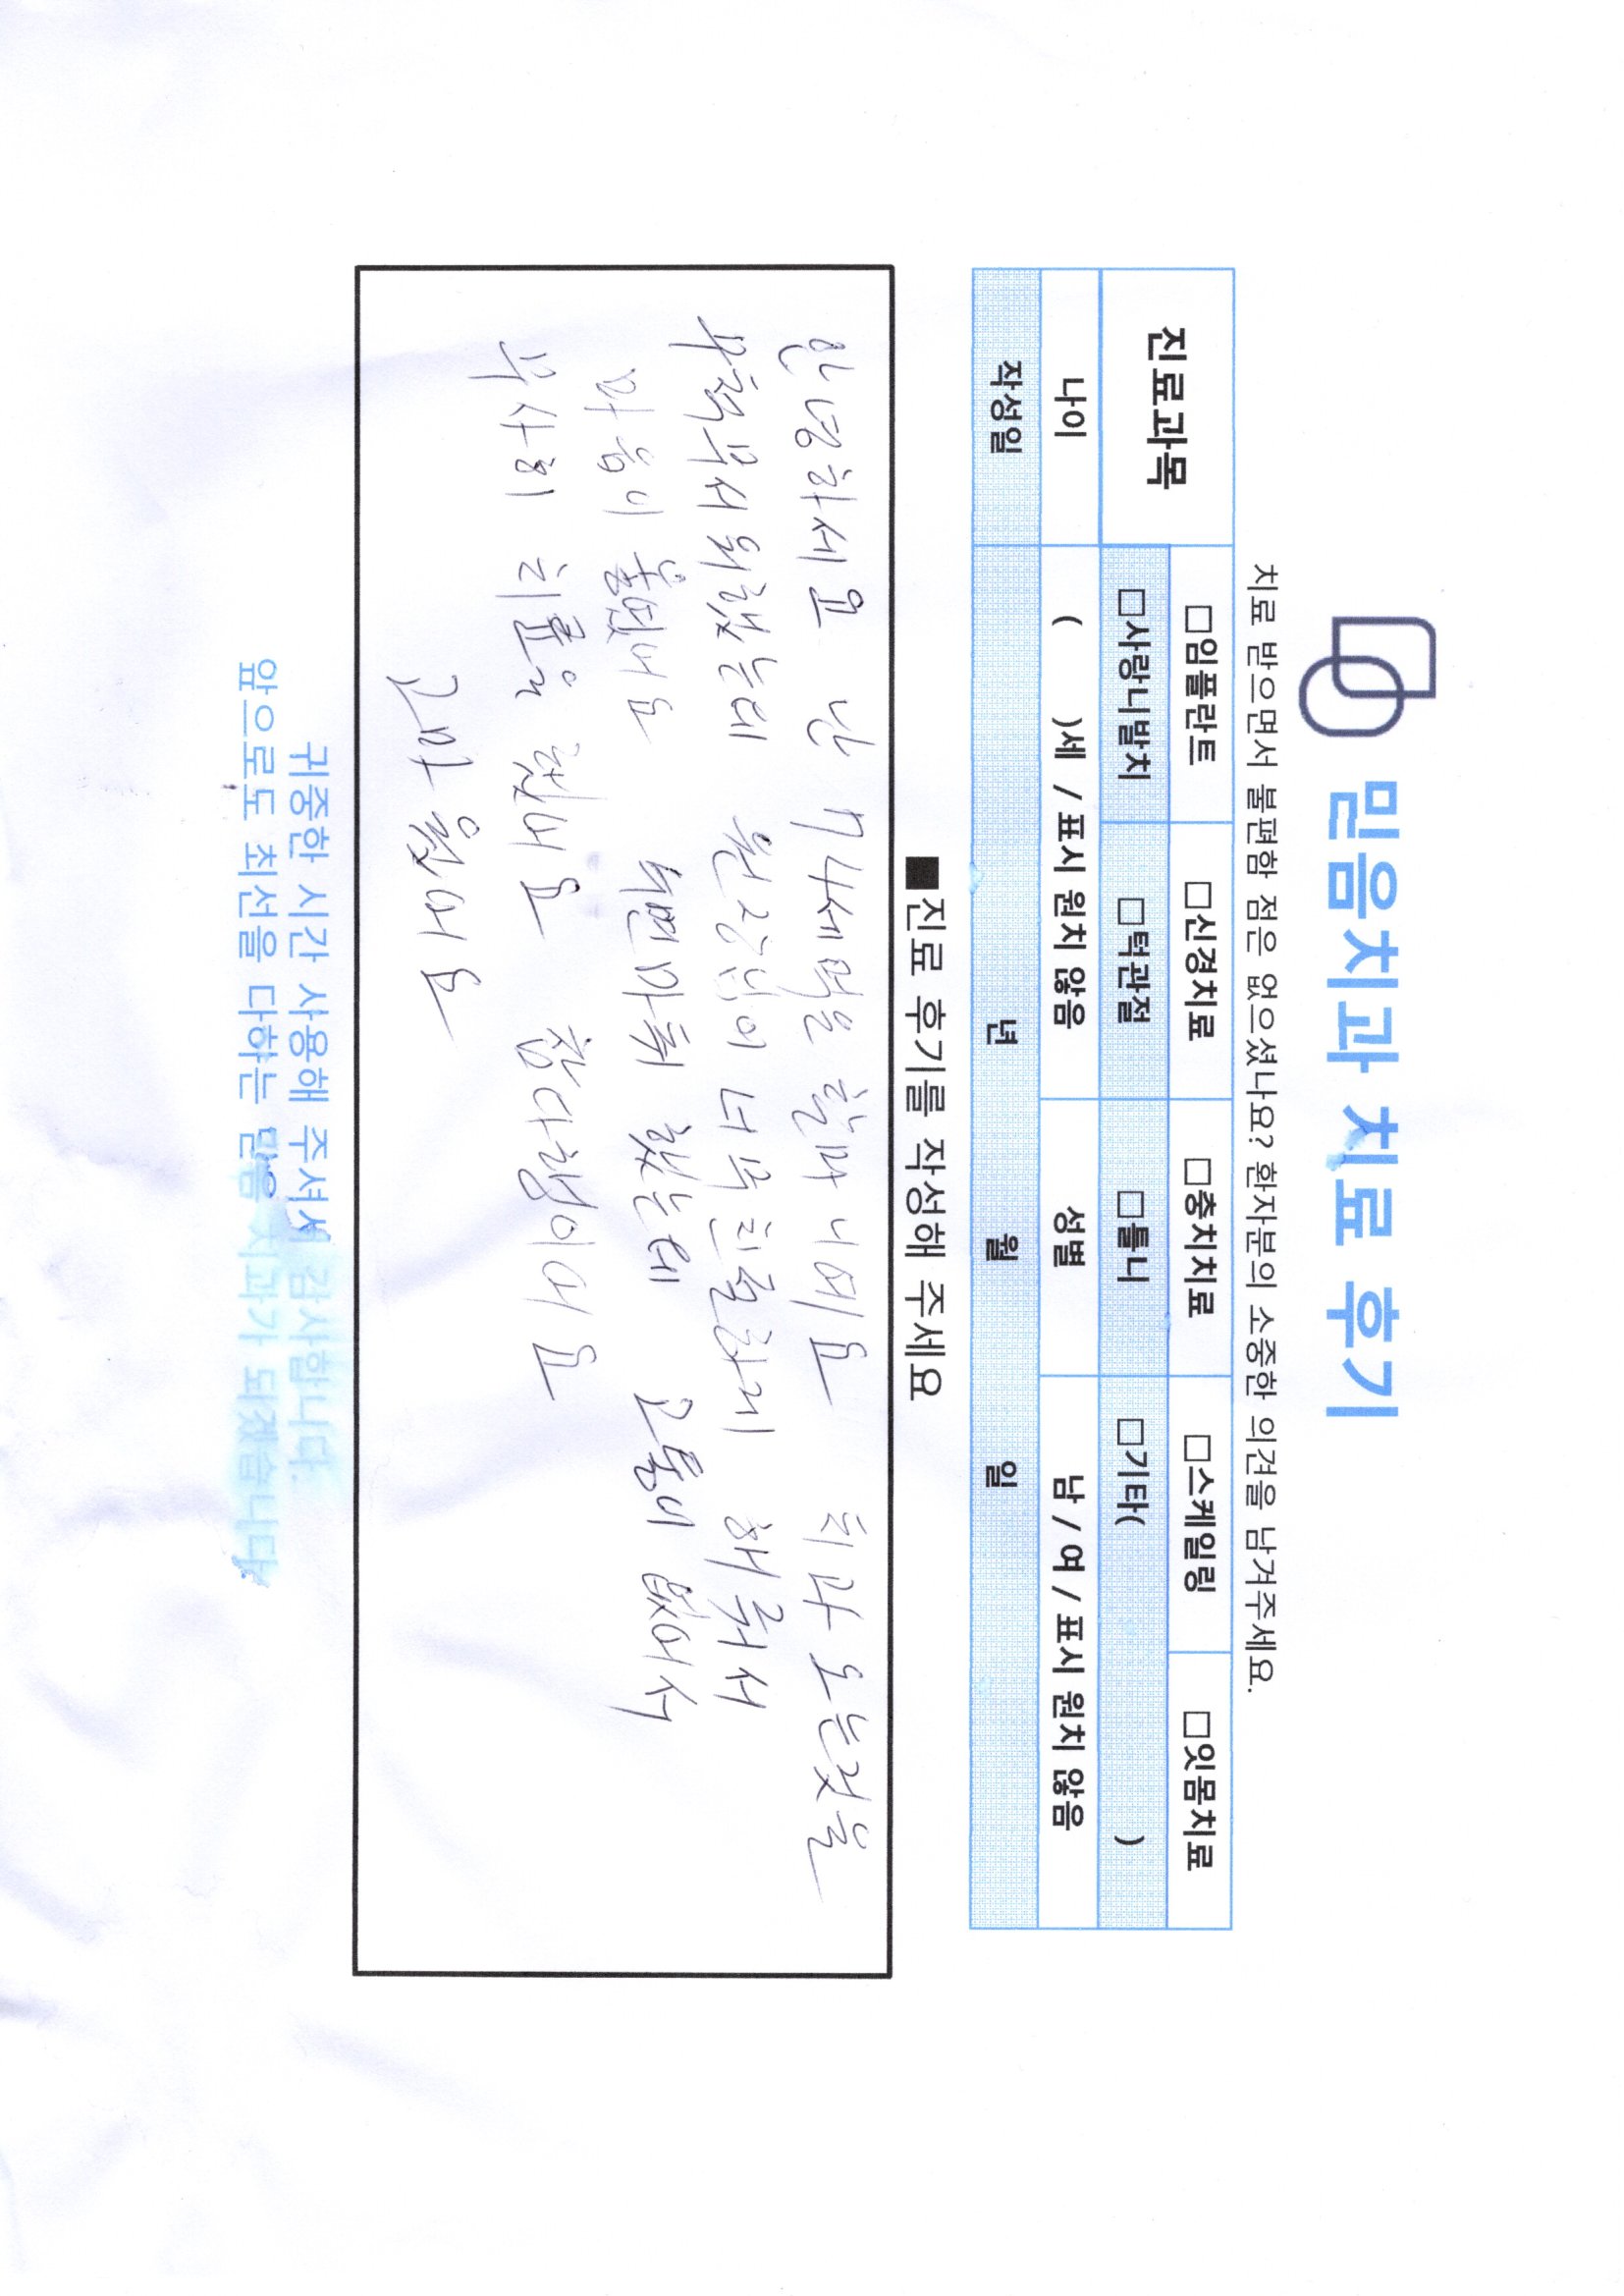 믿음치과 치료 후기
치료 받으면서 불편함 점은 없으셨나요? 환자분의 소중한 의견을 남겨주세요.
진료과목 □임플란트 □신경치료 □충치치료 □스케일링 □잇몸치료
□사랑니발치 □턱관절 □틀니 □기타( )
나이 ( )세 / 표시 원치 않음 성별 남 / 여 / 표시 원치 않음
작성일 년 월 일
■진료 후기를 작성해 주세요
안녕하세요 난 74세먹은 할머니예요 치과 오는것을
무척무서워했는데 원장님이 너무친절하게 해줘서
마음이 놓였어요 수면마취 했는데 고통이 없어서
무사히 치료을 했어요 참다행이어요
고마웠어요
귀중한 시간 사용해 주셔서 감사합니다.
앞으로도 최선을 다하는 믿음 치과가 되겠습니다